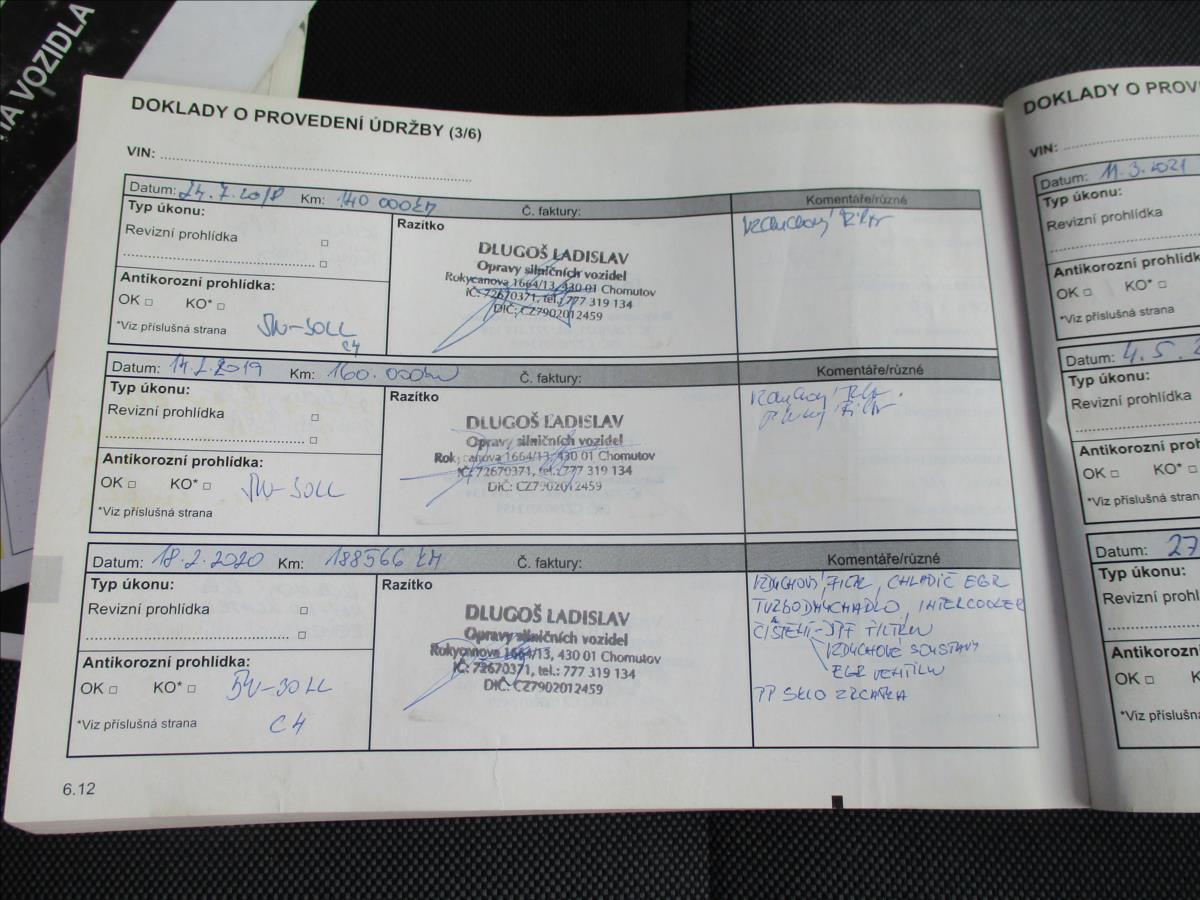 HA VOZIDLA
DOKLADY O PROVEDENÍ ÚDRŽBY (3/6)
VIN:
Datum: 24.7.2018 Km: 140 000km Č. faktury: Komentáře/různé
Typ úkonu:
Revizní prohlídka □
□
Antikorozní prohlídka:
OK □ KO* □
*Viz příslušná strana
5W-30LL
C4
Razítko
DLUGOŠ LADISLAV
Opravy silničních vozidel
Rokycanova 1664/13, 430 01 Chomutov
IČ: 72670371, tel.: 777 319 134
DIČ: CZ7902012459
vzduchový filtr
Datum: 14.2.2019 Km: 160.000km Č. faktury: Komentáře/různé
Typ úkonu:
Revizní prohlídka □
□
Antikorozní prohlídka:
OK □ KO* □ 5W-30LL
*Viz příslušná strana
Razítko
DLUGOŠ LADISLAV
Opravy silničních vozidel
Rokycanova 1664/13, 430 01 Chomutov
IČ: 72670371, tel.: 777 319 134
DIČ: CZ7902012459
vzduchový filtr
filtr
Datum: 18.2.2020 Km: 188566 km Č. faktury: Komentáře/různé
Typ úkonu:
Revizní prohlídka □
□
Antikorozní prohlídka:
OK □ KO* □ 5W-30LL
*Viz příslušná strana C4
Razítko
DLUGOŠ LADISLAV
Opravy silničních vozidel
Rokycanova 1664/13, 430 01 Chomutov
IČ: 72670371, tel.: 777 319 134
DIČ: CZ7902012459
VZDUCHOVÝ FILTR, CHLADIČ EGR
TURBODMYCHADLO, INTERCOOLER
ČIŠTĚNÍ-DPF FILTRU
VZDUCHOVÉ SOUSTAVY
EGR VENTILU
PP SKLO ZRCÁTKA
6.12
DOKLADY O PROVE
VIN:
Datum: 11.3.2021
Typ úkonu:
Revizní prohlídka
Antikorozní prohlídk
OK □ KO* □
*Viz příslušná strana
Datum: 4.5.2
Typ úkonu:
Revizní prohlídka
Antikorozní prohl
OK □ KO* □
*Viz příslušná stran
Datum: 27
Typ úkonu:
Revizní prohl
Antikorozní
OK □ K
*Viz příslušna